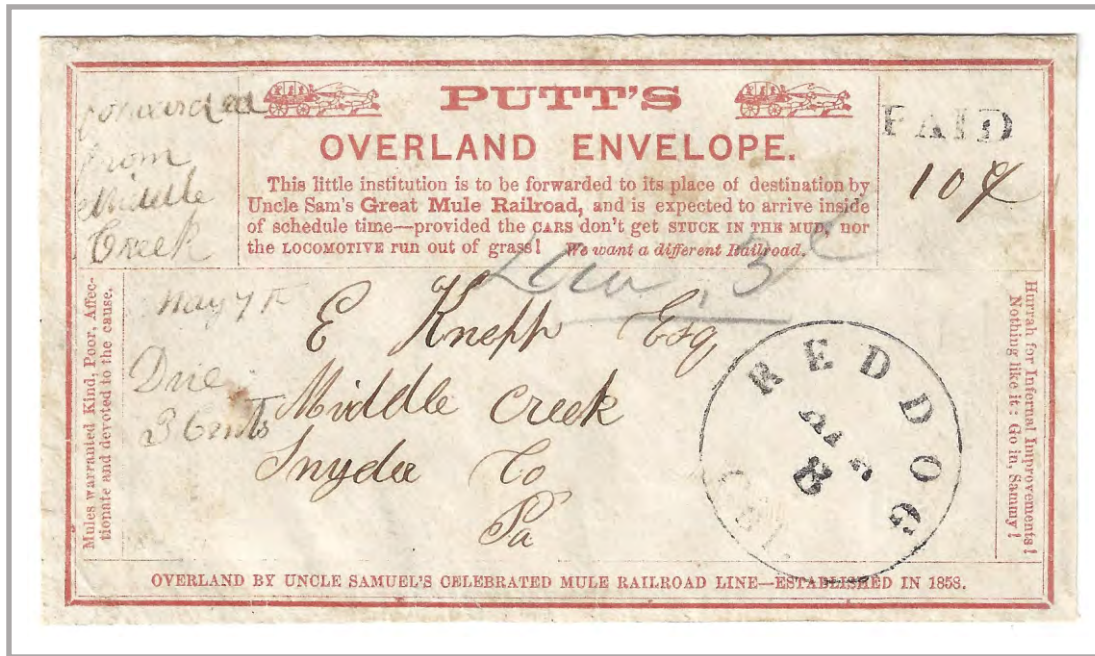 forwarded
from
Middle
Creek
PUTT'S
OVERLAND ENVELOPE.
This little institution is to be forwarded to its place of destination by
Uncle Sam's Great Mule Railroad, and is expected to arrive inside
of schedule time—provided the CARS don't get STUCK IN THE MUD, nor
the LOCOMOTIVE run out of grass! We want a different Railroad.
PAID
10¢
Mules warranted Kind, Poor, Affec-
tionate and devoted to the cause.
May 7
Due
3 Cents
E Knepp Esq
Middle Creek
Snyder Co
Pa
RED DOG
8
Hurrah for Infernal Improvements!
Nothing like it: Go in, Sammy!
OVERLAND BY UNCLE SAMUEL'S CELEBRATED MULE RAILROAD LINE—ESTABLISHED IN 1858.